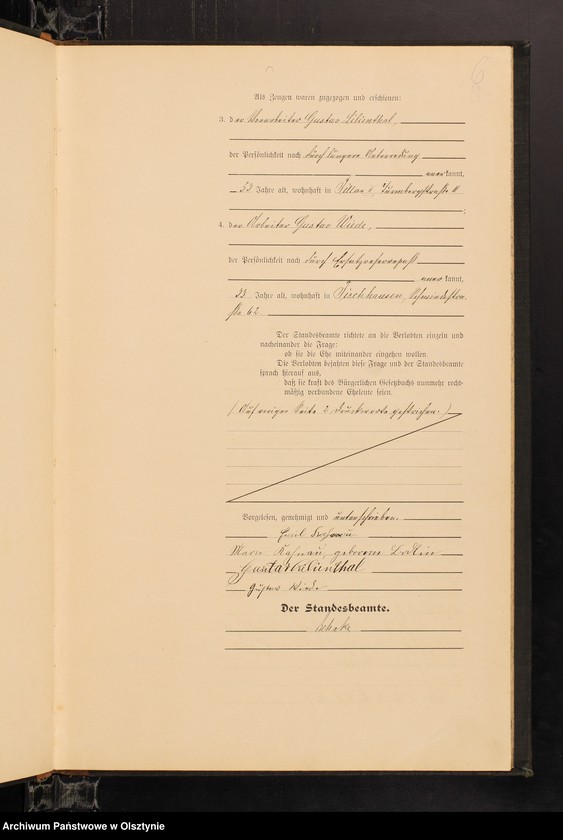 6
Als Zeugen waren zugezogen und erschienen:
3. der Vorarbeiter Gustav Lilienthal,
der Persönlichkeit nach durch längere Unterredung
anerkannt,
53 Jahre alt, wohnhaft in
4. der Arbeiter Gustav Wiede,
der Persönlichkeit nach durch Ersatzreservepaß
anerkannt,
33 Jahre alt, wohnhaft in
62.
Der Standesbeamte richtete an die Verlobten einzeln und
nacheinander die Frage:
ob sie die Ehe miteinander eingehen wollen.
Die Verlobten bejahten diese Frage und der Standesbeamte
sprach hierauf aus,
daß sie kraft des Bürgerlichen Gesetzbuchs nunmehr recht-
mäßig verbundene Eheleute seien.
(Auf voriger Seite 2 Druckworte gestrichen.)
Vorgelesen, genehmigt und unterschrieben.
Emil
Marie geborene
Gustav Lilienthal
Gustav Wiede
Der Standesbeamte.
Archiwum Państwowe w Olsztynie